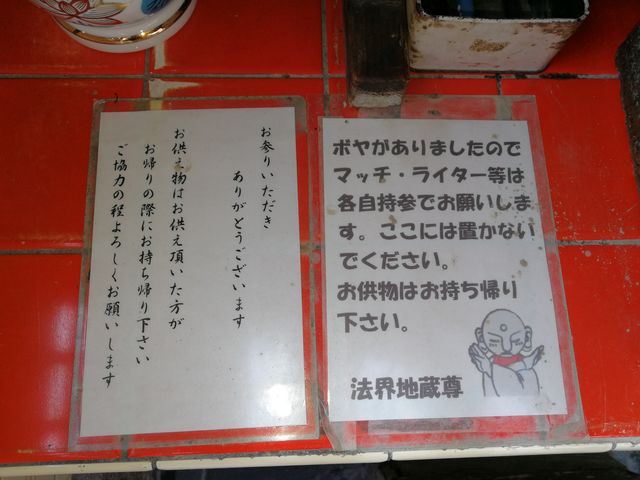 お参りいただき
ありがとうございます
お供え物はお供え頂いた方が
お帰りの際にお持ち帰り下さい
ご協力の程よろしくお願いします
ボヤがありましたので
マッチ・ライター等は
各自持参でお願いしま
す。ここには置かない
でください。
お供物はお持ち帰り
下さい。
法界地蔵尊